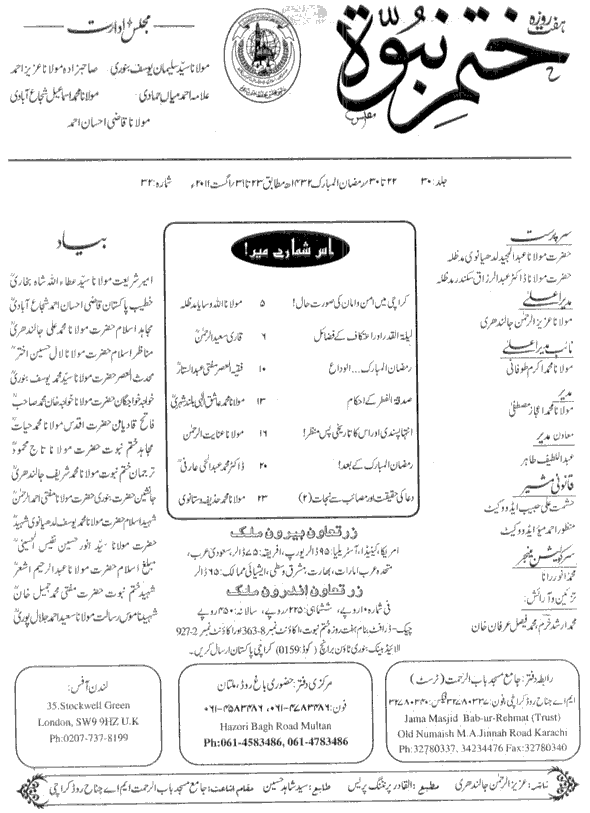 ہفت روزہ
ختم نبوۃ
مجلس ادارت
مولانا سید سلیمان یوسف بنوری صاحبزادہ مولانا عزیز احمد
علامہ احمد میاں حمادی مولانا محمد اسماعیل شجاع آبادی
مولانا قاضی احسان احمد
جلد: ۳۰ ۲۲ تا ۳۰ رمضان المبارک ۱۴۳۲ھ مطابق ۲۳ تا ۳۱ اگست ۲۰۱۱ء شمارہ: ۳۲
سرپرست
حضرت مولانا عبدالمجید لدھیانوی مدظلہ
حضرت مولانا ڈاکٹر عبدالرزاق سکندر مدظلہ
مدیر اعلیٰ
مولانا عزیز الرحمٰن جالندھری
نائب مدیر اعلیٰ
مولانا محمد اکرم طوفانی
مدیر
مولانا محمد اعجاز مصطفیٰ
معاون مدیر
عبداللطیف طاہر
قانونی مشیر
حشمت علی حبیب ایڈووکیٹ
منظور احمد میو ایڈووکیٹ
سرکولیشن منیجر
محمد انور رانا
تزئین و آرائش:
محمد ارشد خرم، محمد فیصل عرفان خان
اس شمارے میں!
کراچی میں امن و امان کی صورت حال! ۵ مولانا اللہ وسایا مدظلہ
لیلۃ القدر اور اعتکاف کے فضائل ۶ قاری سعید الرحمٰنؒ
رمضان المبارک... الوداع ۱۰ فقیہ العصر مفتی عبدالستارؒ
صدقۃ الفطر کے احکام ۱۳ مولانا محمد عاشق الٰہی بلند شہریؒ
انتہا پسندی اور اس کا تاریخی پس منظر! ۱۶ مولانا عنایت الرحمٰن
رمضان المبارک کے بعد! ۲۰ ڈاکٹر محمد عبدالحئی عارفیؒ
دعا کی حقیقت اور مصائب سے نجات (۲) ۲۳ مولانا محمد حذیفہ وستانوی
بیاد
امیر شریعت مولانا سید عطاء اللہ شاہ بخاریؒ
خطیب پاکستان قاضی احسان احمد شجاع آبادیؒ
مجاہد اسلام حضرت مولانا محمد علی جالندھریؒ
مناظر اسلام حضرت مولانا لال حسین اخترؒ
محدث العصر حضرت مولانا سید محمد یوسف بنوریؒ
خواجہ خواجگان حضرت مولانا خواجہ خان محمد صاحبؒ
فاتح قادیان حضرت اقدس مولانا محمد حیاتؒ
مجاہد ختم نبوت حضرت مولانا تاج محمودؒ
ترجمان ختم نبوت حضرت مولانا محمد شریف جالندھریؒ
جانشین حضرت بنوری حضرت مولانا مفتی احمد الرحمٰنؒ
شہید اسلام حضرت مولانا محمد یوسف لدھیانوی شہیدؒ
حضرت مولانا سید انور حسین نفیس الحسینیؒ
مبلغ اسلام حضرت مولانا عبدالرحیم اشعرؒ
شہید ختم نبوت حضرت مفتی محمد جمیل خانؒ
شہید ناموس رسالت مولانا سعید احمد جلال پوریؒ
زرتعاون بیرون ملک
امریکا، کینیڈا، آسٹریلیا: ۹۵ ڈالر یورپ، افریقہ: ۷۵ ڈالر، سعودی عرب،
متحدہ عرب امارات، بھارت، مشرق وسطی، ایشیائی ممالک: ۶۵ ڈالر
زرتعاون اندرون ملک
فی شمارہ ۱۰ روپے، ششماہی: ۲۲۵ روپے، سالانہ: ۴۵۰ روپے
چیک-ڈرافٹ بنام ہفت روزہ ختم نبوت، اکاؤنٹ نمبر 8-363 اور اکاؤنٹ نمبر 2-927
الائیڈ بینک بنوری ٹاؤن برانچ (کوڈ: 0159) کراچی پاکستان ارسال کریں۔
رابطہ دفتر: جامع مسجد باب الرحمت (ٹرسٹ)
ایم اے جناح روڈ کراچی، فون: ۳۲۷۸۰۳۳۷ فیکس: ۳۲۷۸۰۳۴۰
Jama Masjid Bab-ur-Rehmat (Trust)
Old Numaish M.A.Jinnah Road Karachi
Ph:32780337, 34234476 Fax:32780340
مرکزی دفتر: حضوری باغ روڈ، ملتان
فون: ۰۶۱-۴۷۸۳۴۸۶، ۰۶۱-۴۵۸۳۴۸۶
Hazori Bagh Road Multan
Ph:061-4583486, 061-4783486
لندن آفس:
35.Stockwell Green
London, SW9 9HZ U.K
Ph:0207-737-8199
ناشر: عزیز الرحمٰن جالندھری مطبع: القادر پرنٹنگ پریس طابع: سید شاہد حسین مقام اشاعت: جامع مسجد باب الرحمت ایم اے جناح روڈ کراچی